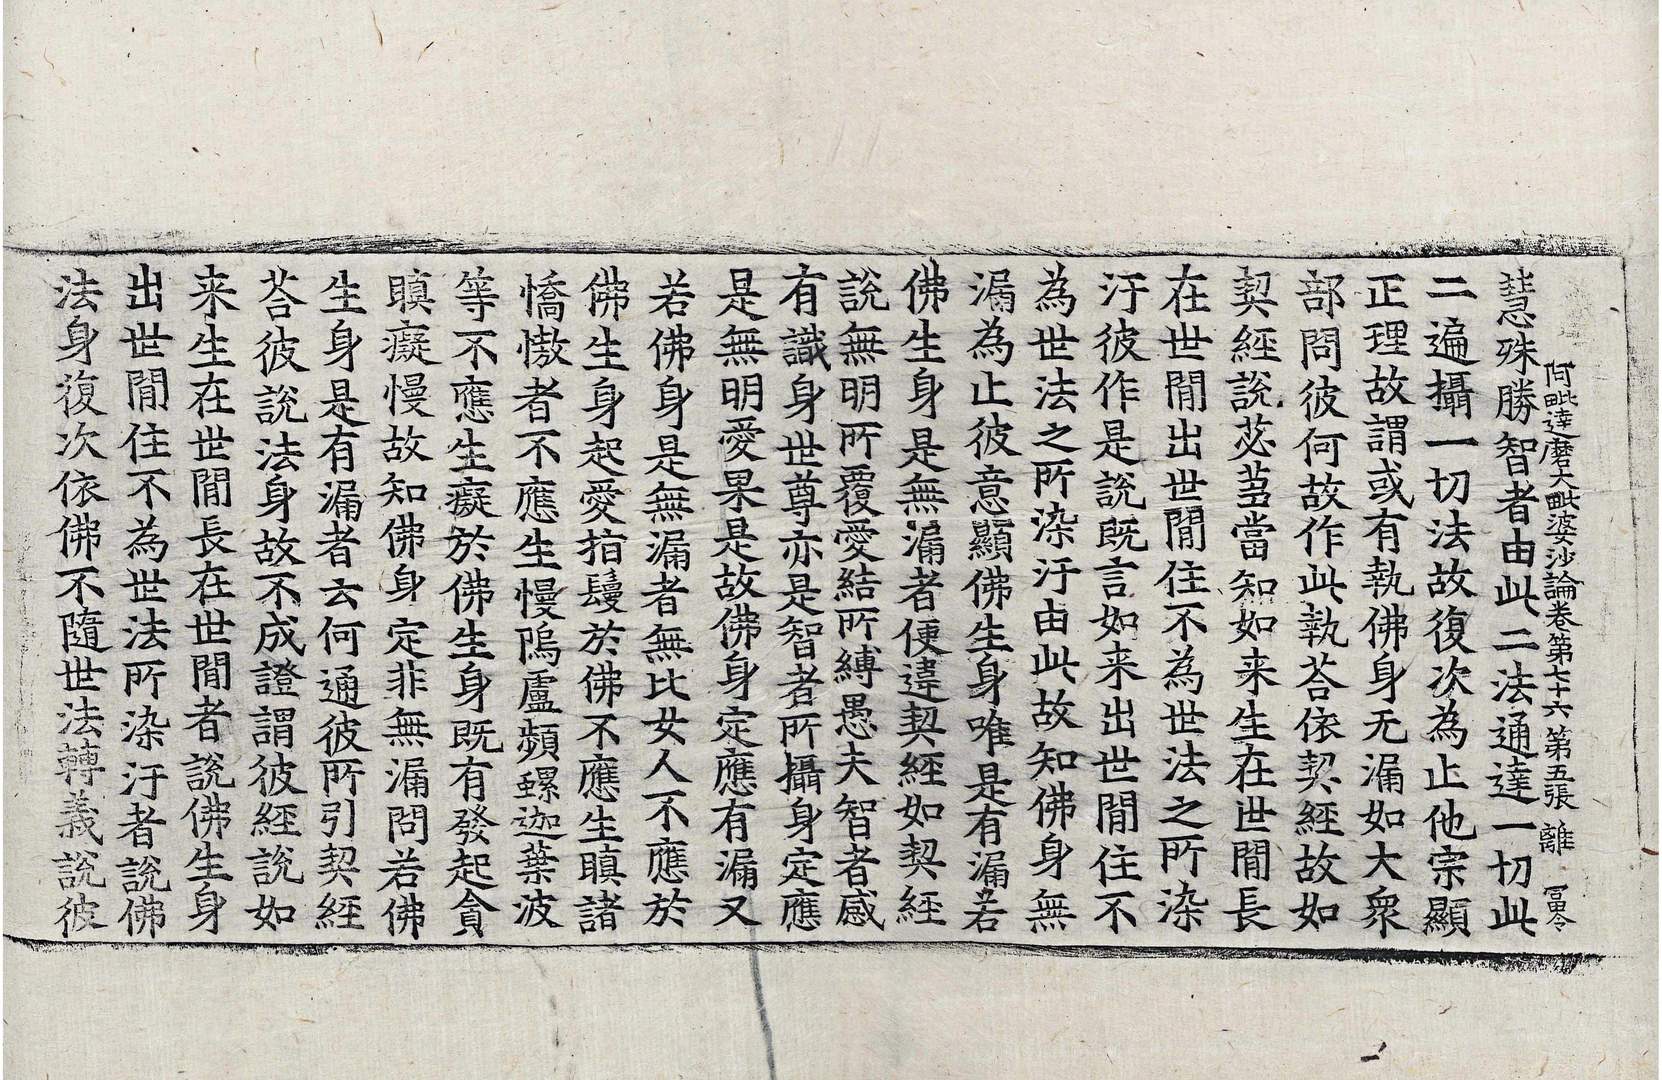 阿毗達磨大毗婆沙論卷第七十六 第五張 離 冨令
慧殊勝智者由此二法通達一切此
二遍攝一切法故復次為止他宗顯
正理故謂或有執佛身无漏如大衆
部問彼何故作此執荅依契經故如
契經說苾芻當知如来生在世閒長
在世閒出世閒住不為世法之所染
汙彼作是說既言如来出世閒住不
為世法之所染汙由此故知佛身無
漏為止彼意顯佛生身唯是有漏若
佛生身是無漏者便違契經如契經
說無明所覆愛結所縛愚夫智者感
有識身世尊亦是智者所攝身定應
是無明愛果是故佛身定應有漏又
若佛身是無漏者無比女人不應於
佛生身起愛指鬘於佛不應生瞋諸
憍慠者不應生慢鄔盧頻螺迦葉波
等不應生癡於佛生身既有發起貪
瞋癡慢故知佛身定非無漏問若佛
生身是有漏者云何通彼所引契經
荅彼說法身故不成證謂彼經說如
来生在世閒長在世閒者說佛生身
出世閒住不為世法所染汙者說佛
法身復次依佛不隨世法轉義說彼